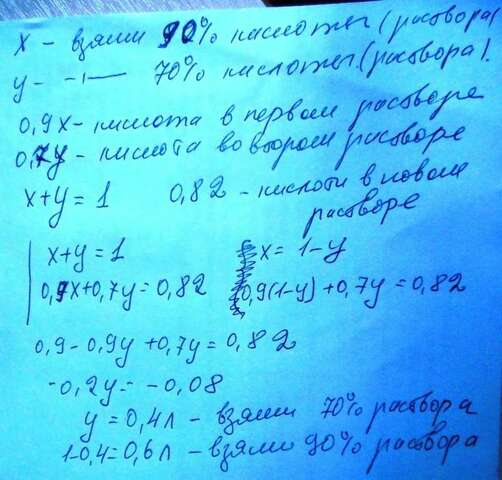 x - взяли 90% кислоты (раствора)
y - -"- 70% кислоты (раствора).
0,9x - кислота в первом растворе
0,7y - кислота во втором растворе
x+y=1 0,82 - кислоты в новом
растворе
x+y=1 x=1-y
0,9x+0,7y=0,82 0,9(1-y)+0,7y=0,82
0,9-0,9y+0,7y=0,82
-0,2y=-0,08
y=0,4л - взяли 70% раствора
1-0,4=0,6л - взяли 90% раствора